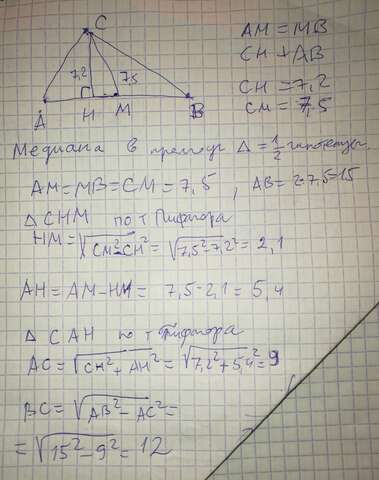 C
7,2
7,5
A
H
M
B
AM = MB
CH ⊥ AB
CH = 7,2
CM = 7,5
Медиана в прямоуг Δ = 1/2 гипотенуз.
AM = MB = CM = 7,5 , AB = 2·7,5=15
Δ CHM по т Пифагора
HM = √CM²-CH² = √7,5²-7,2² = 2,1
AH = AM - HM = 7,5 - 2,1 = 5,4
Δ CAH по т Пифагора
AC = √CH² + AH² = √7,2² + 5,4² = 9
BC = √AB² - AC² =
= √15² - 9² = 12